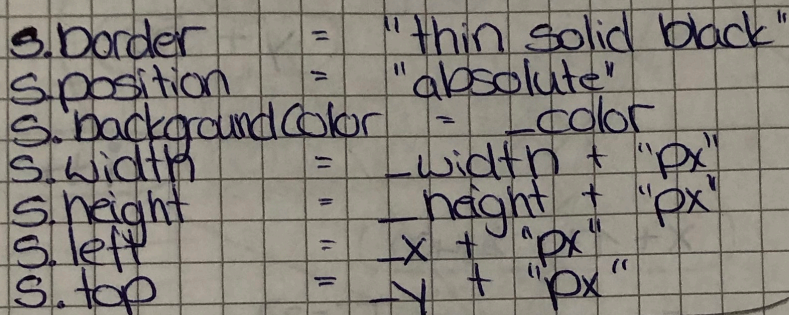 s.border = "thin solid black"
s.position = "absolute"
s.backgroundColor = _color
s.width = _width + "px"
s.height = _height + "px"
s.left = _x + "px"
s.top = _y + "px"